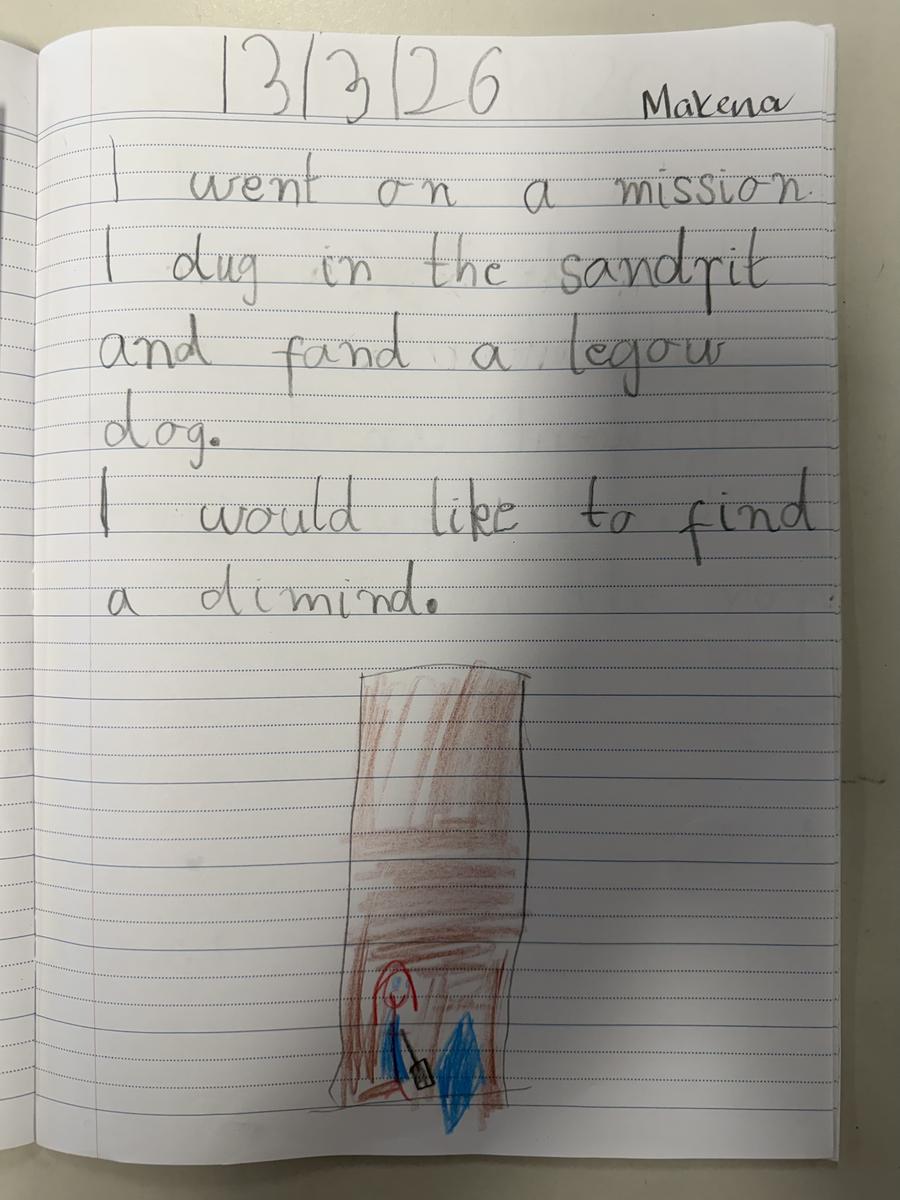 13/3/26
Makena
I went on a mission.
I dug in the sandpit
and fand a legow
dog.
I would like to find
a dimind.